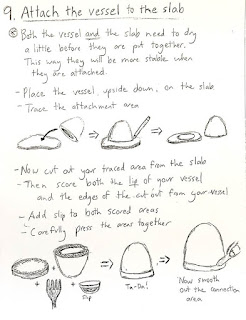 9. Attach the vessel to the slab
Both the vessel and the slab need to dry
a little before they are put together.
This way they will be more stable when
they are attached.
- Place the vessel, upside down, on the slab
- Trace the attachment area
- Now cut out your traced area from the slab
- Then score both the lip of your vessel
and the edges of the cut out from your vessel
- Add slip to both scored areas
- Carefully press the areas together
Slip
Ta-Da!
Now smooth
out the connection
area